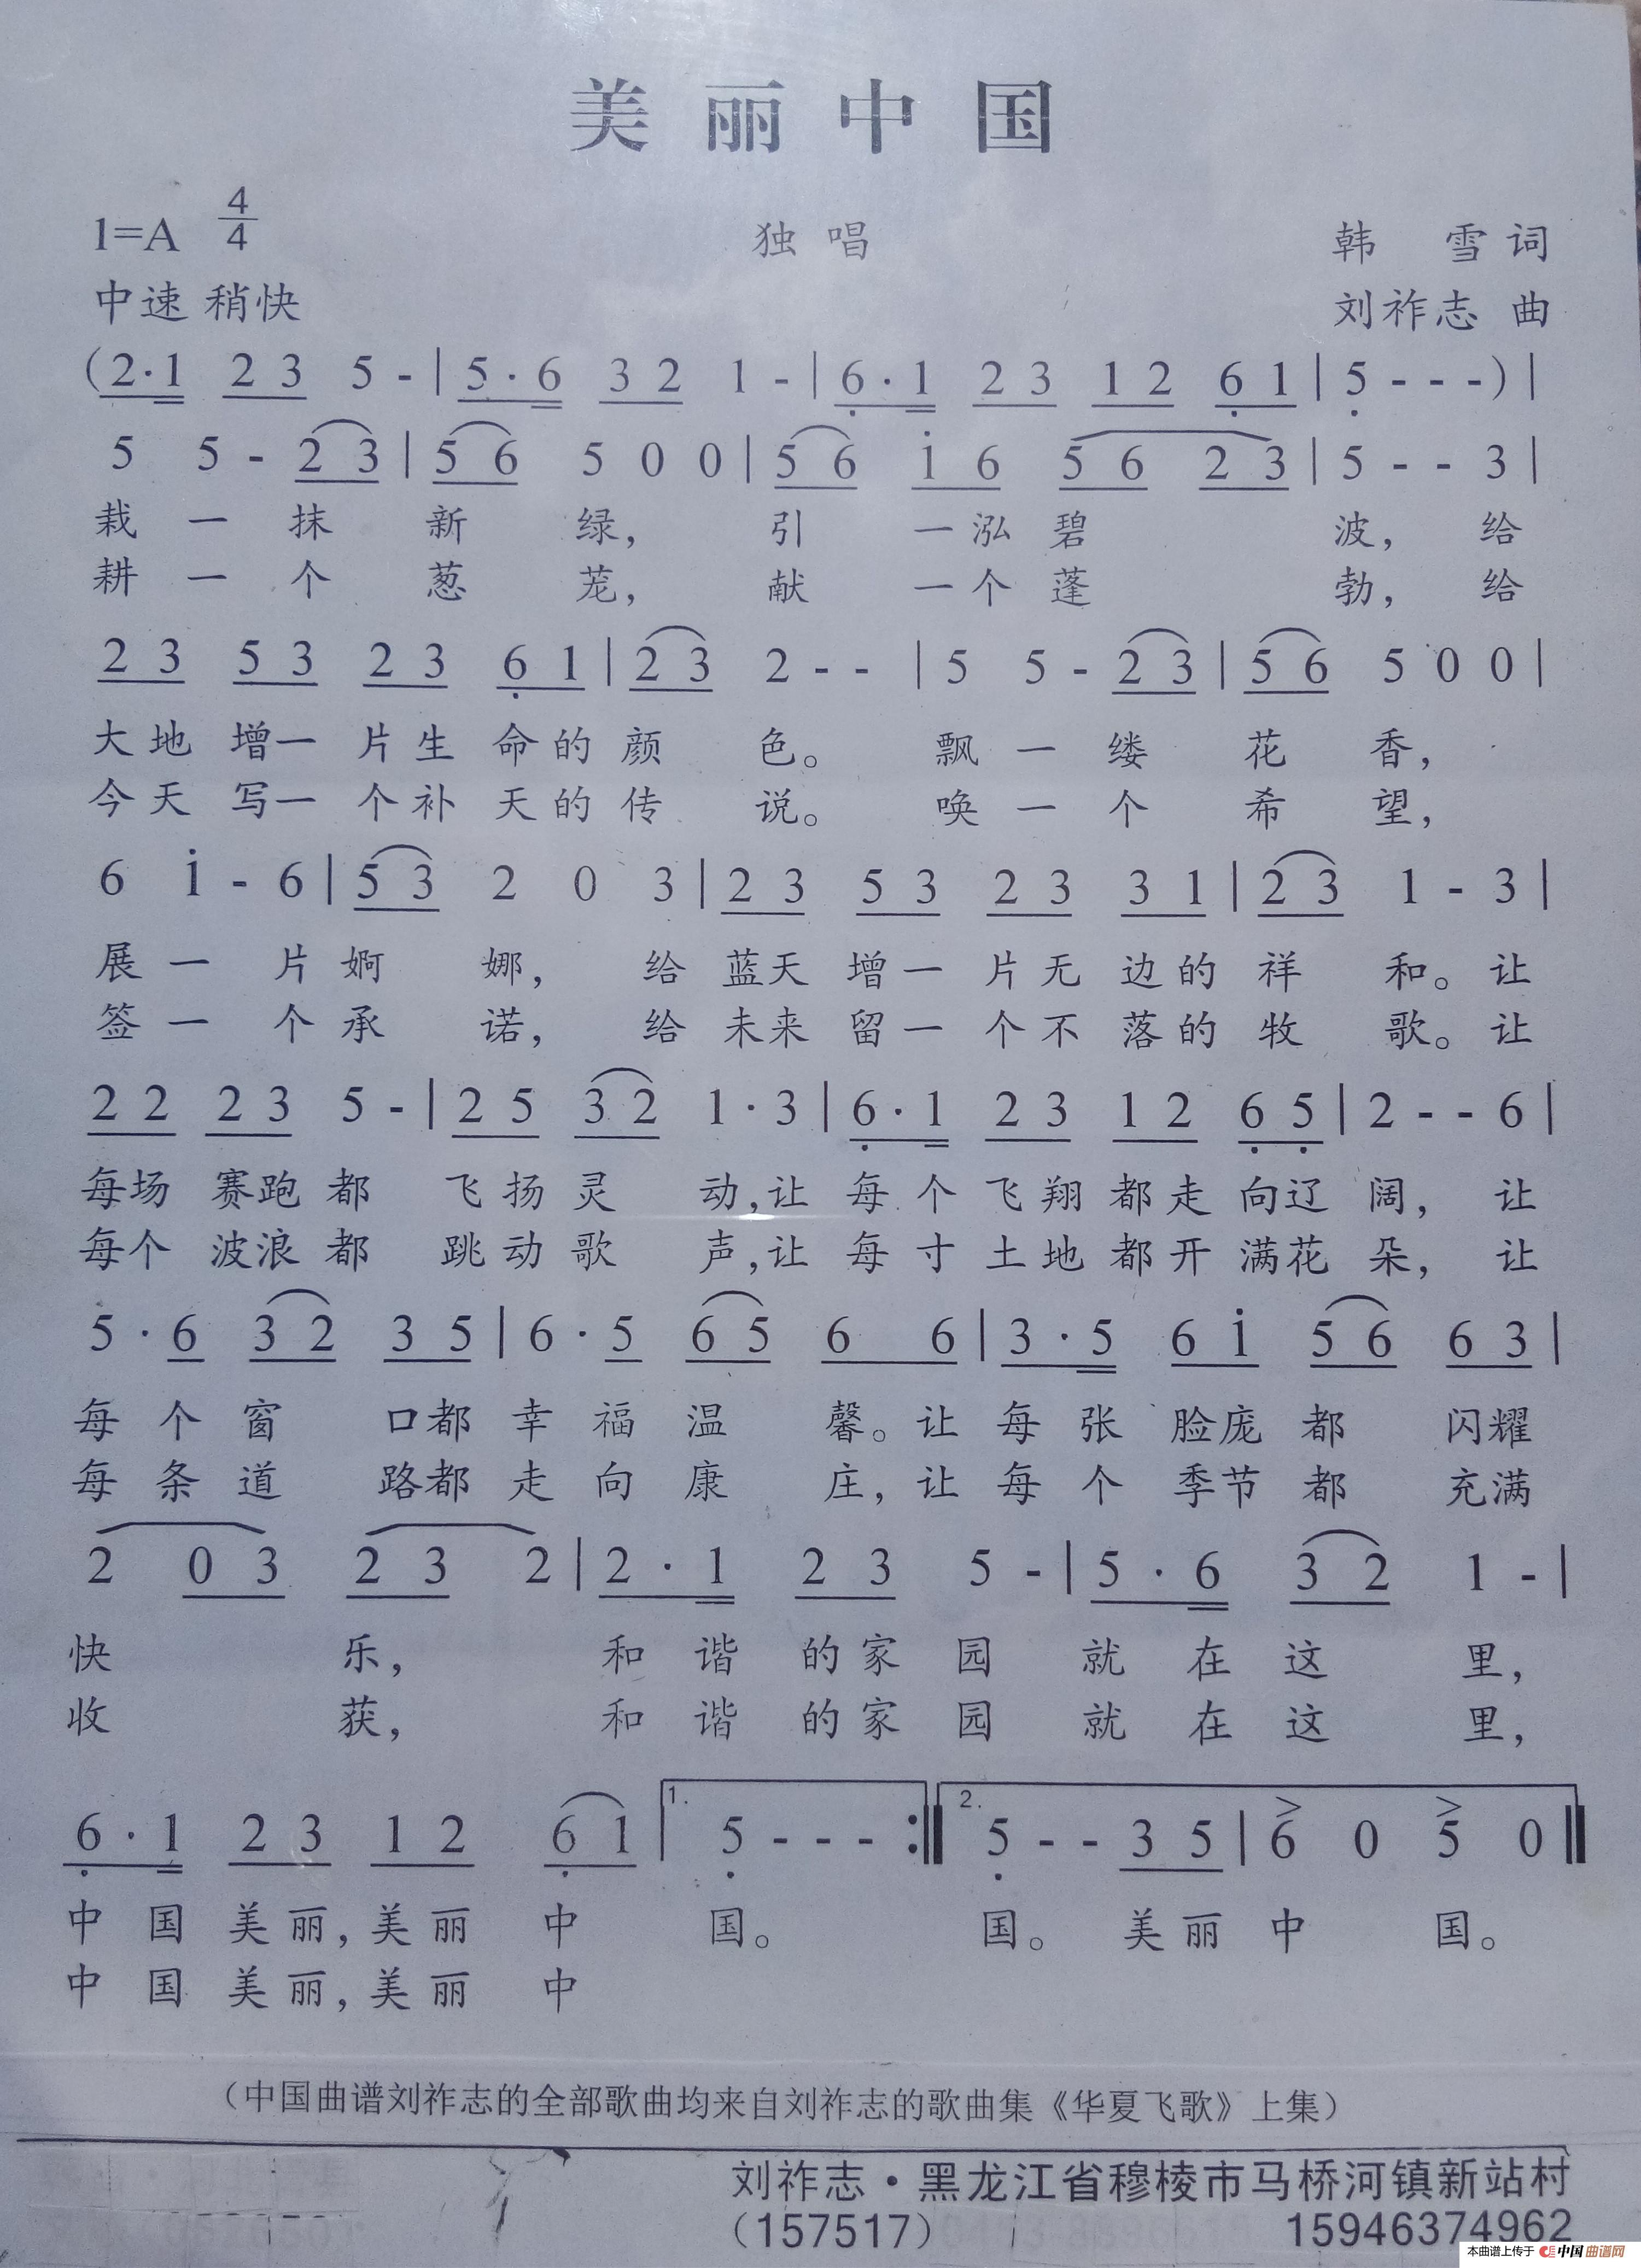 美丽中国
1=A 4/4 独唱 韩雪词
中速 稍快 刘祚志 曲
(2·1 2 3 5 - | 5·6 3 2 1 - | 6·1 2 3 1 2 6 1 | 5 - - -) |
5 5 - 2 3 | 5 6 5 0 0 | 5 6 i 6 5 6 2 3 | 5 - - 3 |
栽一抹新绿，引一泓碧波，给
耕一个葱茏，献一个蓬勃，给
2 3 5 3 2 3 6 1 | 2 3 2 - - | 5 5 - 2 3 | 5 6 5 0 0 |
大地增一片生命的颜色。飘一缕花香，
今天写一个补天的传说。唤一个希望，
6 i - 6 | 5 3 2 0 3 | 2 3 5 3 2 3 3 1 | 2 3 1 - 3 |
展一片婀娜，给蓝天增一片无边的祥和。让
签一个承诺，给未来留一个不落的牧歌。让
2 2 2 3 5 - | 2 5 3 2 1·3 | 6·1 2 3 1 2 6 5 | 2 - - 6 |
每场赛跑都飞扬灵动，让每个飞翔都走向辽阔，让
每个波浪都跳动歌声，让每寸土地都开满花朵，让
5·6 3 2 3 5 | 6·5 6 5 6 6 | 3·5 6 i 5 6 6 3 |
每个窗口都幸福温馨。让每张脸庞都闪耀
每条道路都走向康庄，让每个季节都充满
2 0 3 2 3 2 | 2·1 2 3 5 - | 5·6 3 2 1 - |
快乐，和谐的家园就在这里，
收获，和谐的家园就在这里，
6·1 2 3 1 2 6 1 | 1. 5 - - - :‖ 2. 5 - - 3 5 | 6 0 5 0 ‖
中国美丽，美丽中国。国。美丽中国。
中国美丽，美丽中
（中国曲谱刘祚志的全部歌曲均来自刘祚志的歌曲集《华夏飞歌》上集）
刘祚志·黑龙江省穆棱市马桥河镇新站村
（157517） 15946374962
本曲谱上传于 中国曲谱网